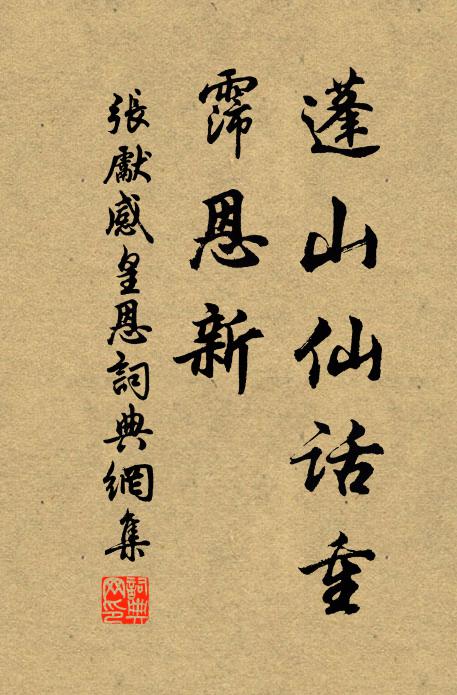 蓬山仙話重
霈恩新
張獻感皇恩詞典網集
詞典网印